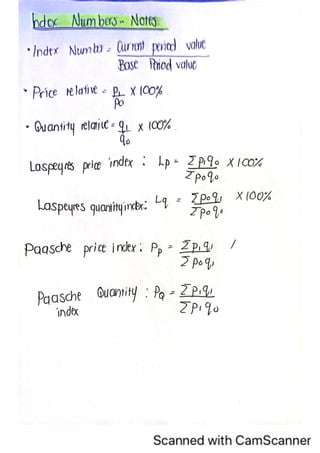 Index Numbers - Notes
• Index Number = Current period value / Base Period value
• Price relative = p₁ / p₀ × 100%
• Quantity relative = q₁ / q₀ × 100%
Laspeyres price index : Lp = Σp₁q₀ / Σp₀q₀ × 100%
Laspeyres quantity index : Lq = Σp₀q₁ / Σp₀q₀ × 100%
Paasche price index : Pp = Σp₁q₁ / Σp₀q₁ /
Paasche Quantity index : PQ = Σp₁q₁ / Σp₁q₀
Scanned with CamScanner